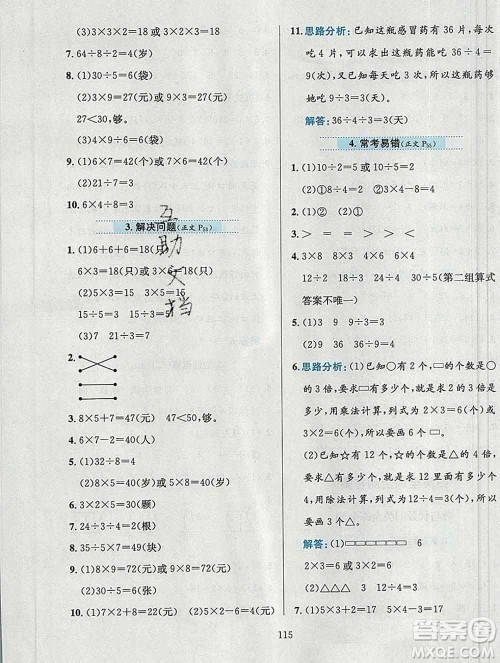 (2)3×3×2=18 或 3×2×3=18
7. 64÷8÷2=4(岁)
8. (1)30÷5=6(袋)
(2)3×9=27(元)或 9×3=27(元)
27<30,够。
9. (1)30÷5=6(袋)
(2)24÷6=4(袋)
10. 6×4÷8=3
3. 解决问题(正文 P₅₃)
1. (1)6+6+6=18(只)
6×3=18(只)或 3×6=18(只)
(2)5×3=15 3×5=15
15÷5=3 15÷3=5
(3)7 21÷3=7
2.
3. 8×5+7=47(元) 47<50,够。
4. 6×7-2=40(人)
5. (1)32÷8=4
(2)8×5=40(元)
6. 3×9+3=30(颗)
7. 45÷5=9(块)
8. (1)8×9=72(元)或 9×8=72(元)
(2)30÷5=6(张)
10. (1)7×8+2=58(元) (2)5×4+2=22(元)
互助文档
11. 思路分析:已知这瓶感冒药有 36 片,每次
吃 4 片,可以求出这瓶药能够吃 36÷4=
9(次),又知每天吃 3 次,所以这瓶药够
她吃 9÷3=3(天)。
解答:36÷4÷3=3(天)
4. 常考易错(正文 P₅₅)
1. (1)10÷5=2 或 10÷2=5
(2)①8÷2=4 ②8÷4=2
2. (2)① ③
3. > = < > = <
4. 3 8 4 6 × × × ×
12÷2 18÷3 24÷4 30÷5(第二组算式
答案不唯一)
5. (1)3 9 9÷3=3
(2)9 36 36÷9=4
6. 思路分析:(1)已知○有 2 个,▭的个数是○
的 3 倍,要求▭有多少个,就是求 2 的 3 倍
是多少,用乘法计算,列式为 2×3=6(个)或
3×2=6(个),所以要画 6 个▭。
(2)已知☆有 12 个,是△的个数的 4 倍,
要求△有多少个,就是求 12 是 4 的多少倍,
用除法计算,列式为 12÷4=3(个),所以要
画 3 个△。
解答:(1)▭▭▭▭▭▭ 6
(2)△△△ 3
7. (1)5×3+2=17 (2)6×4-3=21
115
答案圈
MXEQ.COM